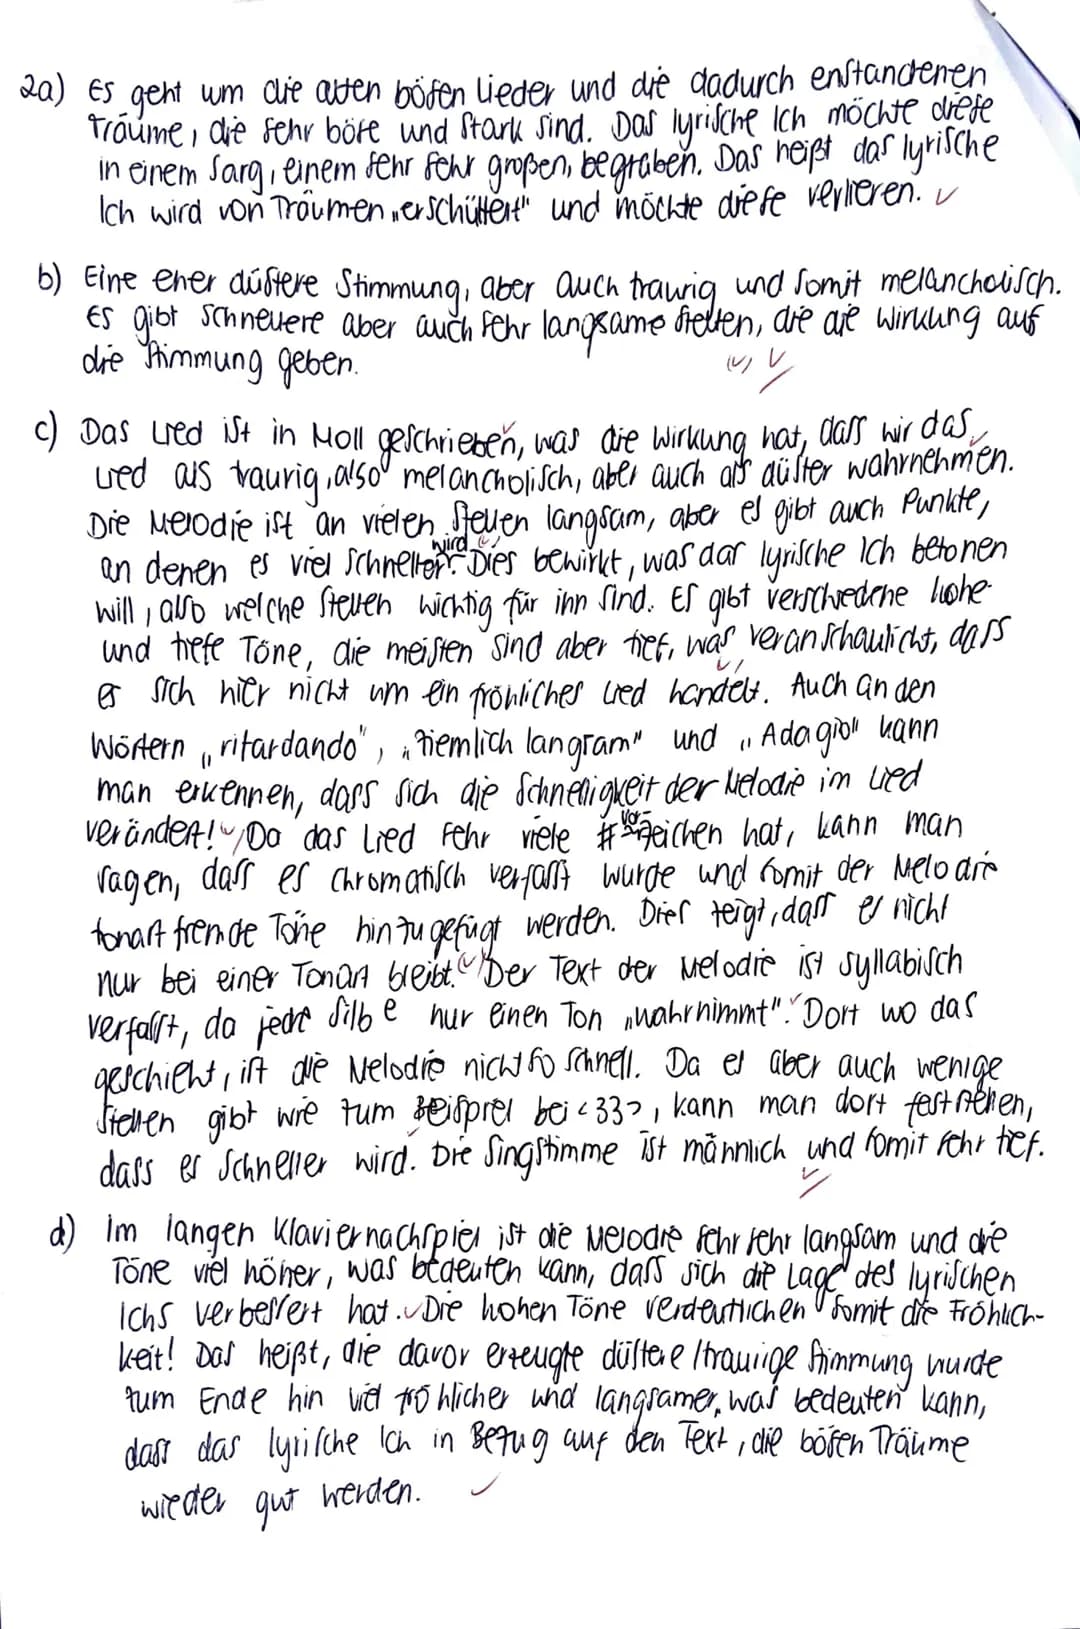 2a) Es geht um die alten bösen Lieder und die dadurch enstandenen
Träume, die sehr böse und stark sind. Das lyrische Ich möchte diese
in einem Sarg, einem sehr sehr großen, begraben. Das heißt das lyrische
Ich wird von Träumen „erschüttert" und möchte diese verlieren. ✓
b) Eine eher düstere Stimmung, aber auch traurig und somit melancholisch.
Es gibt schnellere aber auch sehr langsame Stellen, die die Wirkung auf
die Stimmung geben. (✓) ✓
c) Das Lied ist in Moll geschrieben, was die Wirkung hat, dass wir das
Lied als traurig, also melancholisch, aber auch als düster wahrnehmen.
Die Melodie ist an vielen Stellen langsam, aber es gibt auch Punkte,
an denen es viel schneller wird. Dies bewirkt, was das lyrische Ich betonen
will, also welche Stellen wichtig für ihn sind. Es gibt verschiedene hohe
und tiefe Töne, die meisten sind aber tief, was veranschaulicht, dass
es sich hier nicht um ein fröhliches Lied handelt. Auch an den
Wörtern „ritardando", „Ziemlich langsam" und „Adagio" kann
man erkennen, dass sich die Schnelligkeit der Melodie im Lied
verändert! Da das Lied sehr viele #-Vorzeichen hat, kann man
sagen, dass es chromatisch verfasst wurde und somit der Melodie
tonart fremde Töne hinzugefügt werden. Dies zeigt, dass er nicht
nur bei einer Tonart bleibt. (✓) Der Text der Melodie ist syllabisch
verfasst, da jede Silbe nur einen Ton „wahrnimmt". Dort wo das
geschieht, ist die Melodie nicht so schnell. Da es aber auch wenige
Stellen gibt wie zum Beispiel bei <33>, kann man dort feststehen,
dass es schneller wird. Die Singstimme ist männlich und somit sehr tief.
d) Im langen Klaviernachspiel ist die Melodie sehr sehr langsam und die
Töne viel höher, was bedeuten kann, dass sich die Lage des lyrischen
Ichs verbessert hat. ✓ Die hohen Töne verdeutlichen somit die Fröhlich-
keit! Das heißt, die davor erzeugte düstere/traurige Stimmung wurde
zum Ende hin viel fröhlicher und langsamer, was bedeuten kann,
dass das lyrische Ich in Bezug auf den Text, die bösen Träume
wieder gut werden. ✓